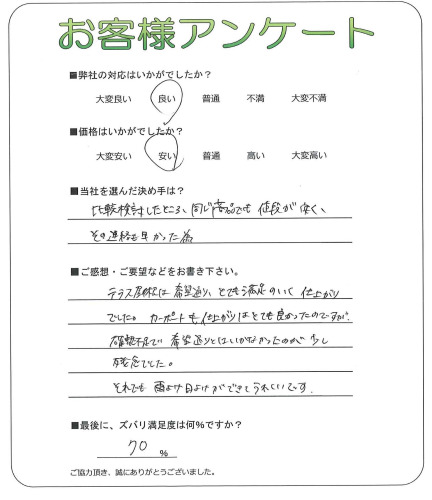 お客様アンケート
■弊社の対応はいかがでしたか？
大変良い 良い 普通 不満 大変不満
■価格はいかがでしたか？
大変安い 安い 普通 高い 大変高い
■当社を選んだ決め手は？
比較検討したところ、同じ商品でも値段が安く、
その連絡も早かった為
■ご感想・ご要望などをお書き下さい。
テラス屋根は希望通り、とても満足のいく仕上がり
でした。カーポートも仕上がりはとても良かったのですが、
確認不足で希望通りとはいかなかったのが少し
残念でした。
それでも雨よけ日よけができてうれしいです。
■最後に、ズバリ満足度は何％ですか？
70 ％
ご協力頂き、誠にありがとうございました。